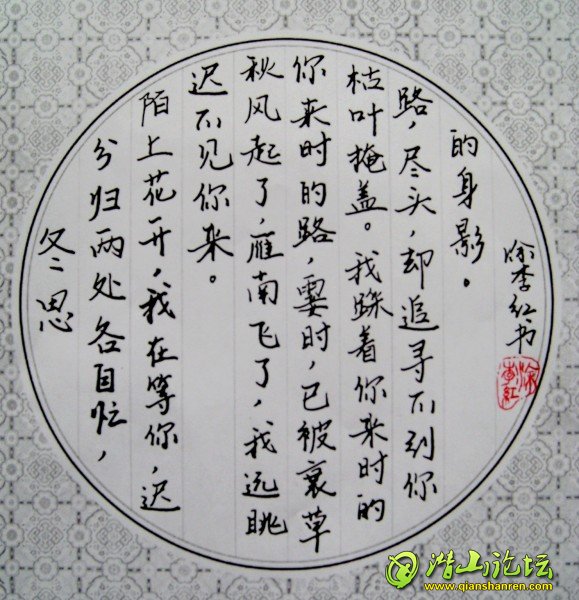 冬思
分归两处各自忙，
陌上花开，我在等你，迟
迟不见你来。
秋风起了，雁南飞了，我远眺
你来时的路，霎时，已被衰草
枯叶掩盖。我踩着你来时的
路，尽头，却追寻不到你
的身影。
徐李红书
徐李红
潜山论坛
www.qianshanren.com